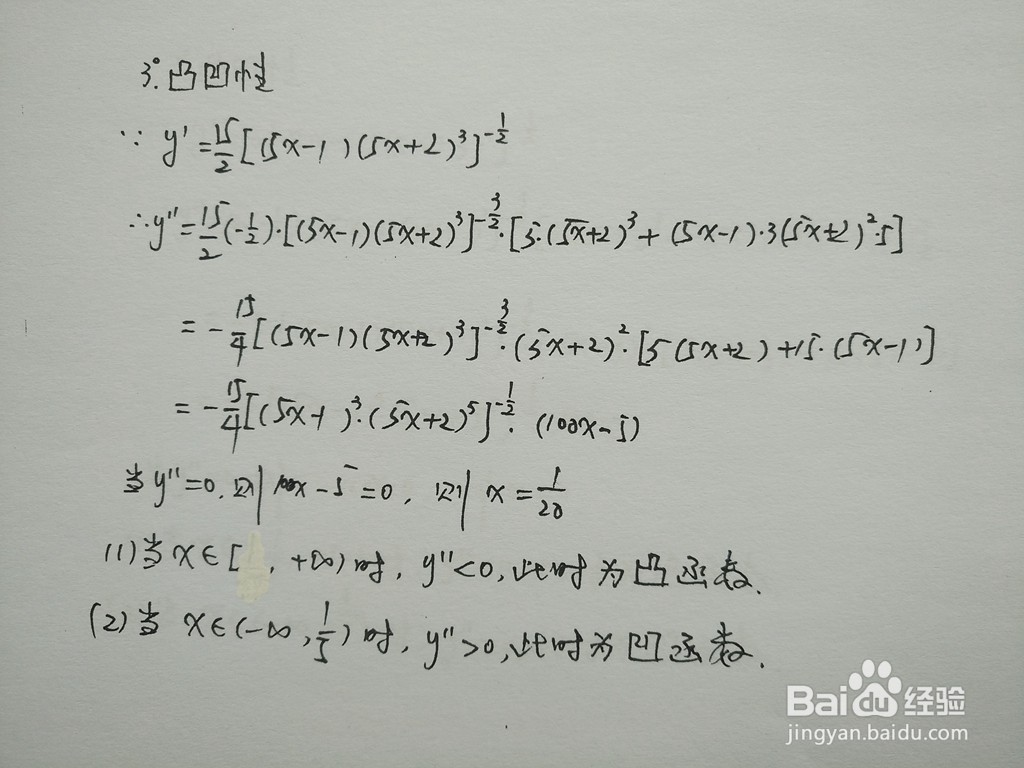 3°.凸凹性
∵ y' = 15/2 [(5x-1)(5x+2)³]^(-1/2)
∴ y'' = 15/2 (-1/2)·[(5x-1)(5x+2)³]^(-3/2)·[5·(5x+2)³+(5x-1)·3(5x+2)²·5]
= -15/4 [(5x-1)(5x+2)³]^(-3/2)·(5x+2)²·[5(5x+2)+15·(5x-1)]
= -15/4 [(5x-1)³·(5x+2)⁵]^(-1/2)·(100x-5)
当y''=0,则100x-5=0,则x=1/20
(1)当x∈[ ,+∞)时,y''<0,此时为凸函数.
(2)当x∈(-∞,1/5)时,y''>0,此时为凹函数.
Baidu经验
jingyan.baidu.com